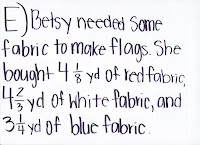 E) Betsy needed some
fabric to make flags. She
bought 4 1/8 yd of red fabric,
4 2/3 yd of white fabric, and
3 1/4 yd of blue fabric.